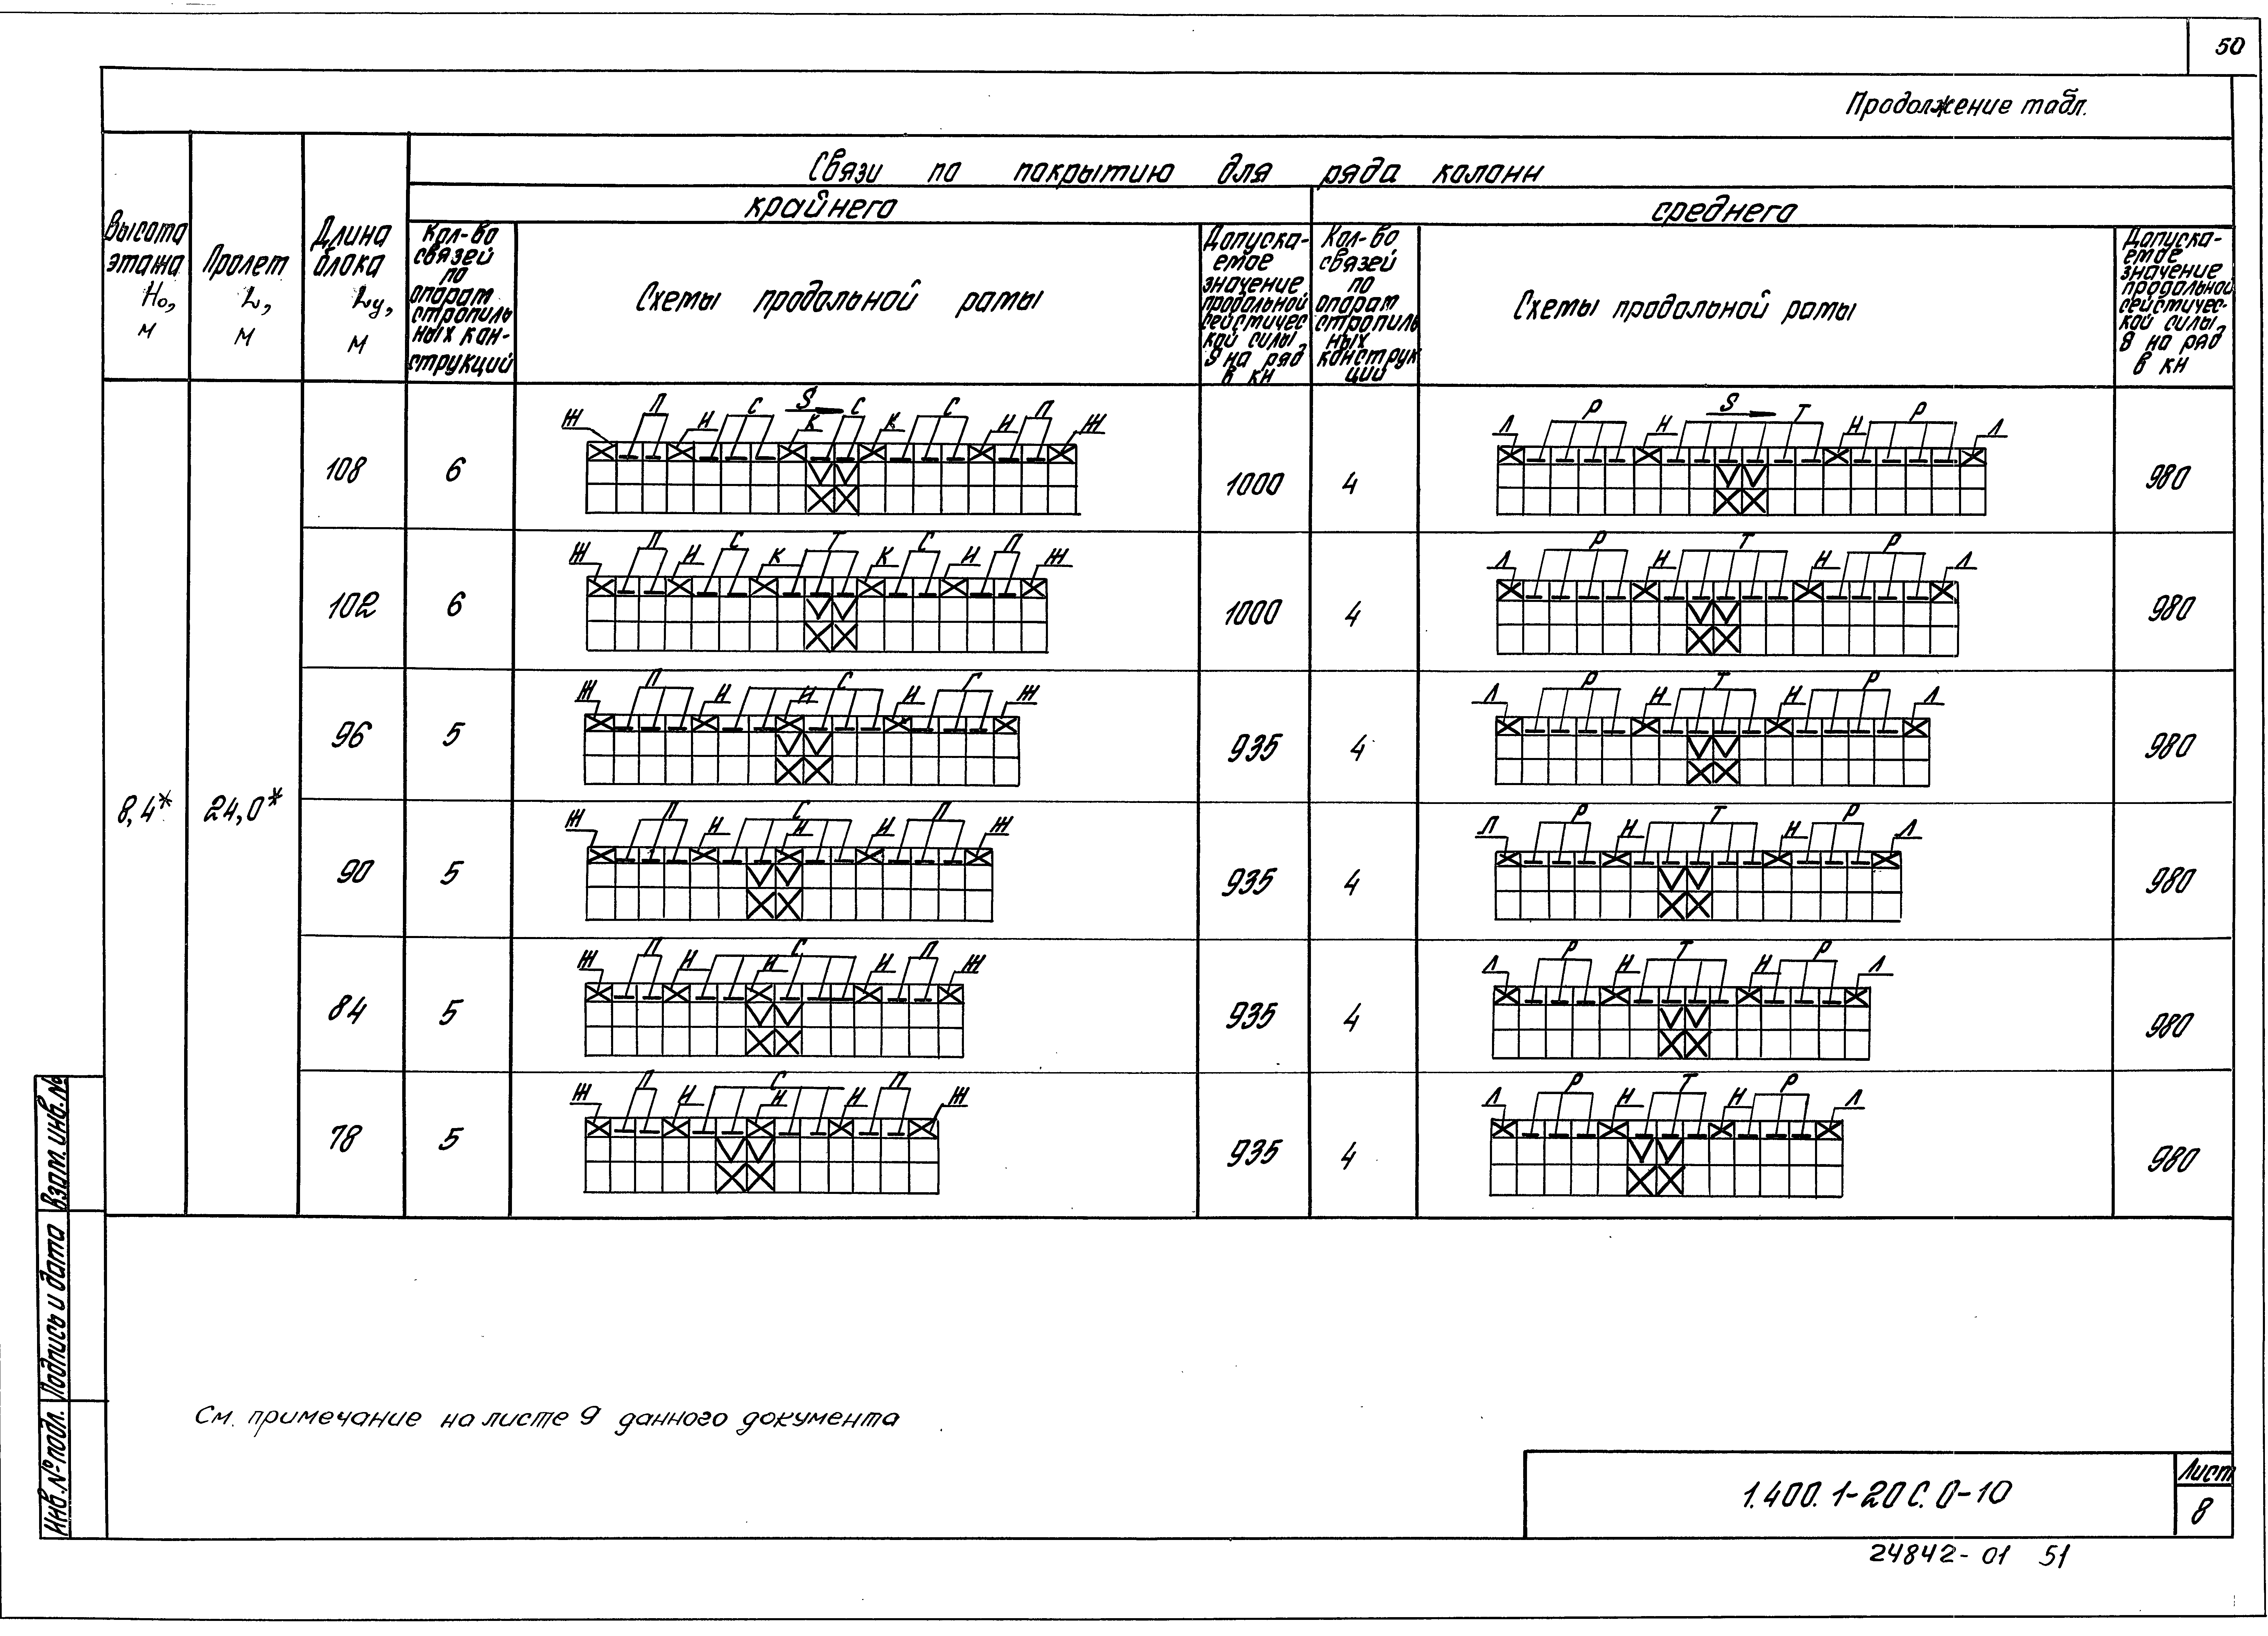 50
Продолжение табл.
Высота этажа Но, м
Пролет L, м
Длина блока Lу, м
Связи по покрытию для ряда колонн
крайнего
среднего
Кол-во связей по опорам стропильных кон-струкций
Схемы продольной рамы
Допуска-емое значение продольной сейсмичес кой силы S на ряд в кН
Кол-во связей по опорам стропильных конструкций
Схемы продольной рамы
Допуска-емое значение продольной сейсмичес-кой силы S на ряд в кН
8,4* 24,0*
108 6
Ж П И С S К С К С И П Ж
1000 4
Л Р Н S Т Н Р Л
980
102 6
Ж П И С К Т К С И П Ж
1000 4
Л Р Н Т Н Р Л
980
96 5
Ж П И И С И Г Ж
935 4
Л Р Н Т Н Р Л
980
90 5
Ж П И С И И П Ж
935 4
Л Р Н Т Н Р Л
980
84 5
Ж П И И С И П Ж
935 4
Л Р Н Т Н Р Л
980
78 5
Ж П И С И И П Ж
935 4
Л Р Н Т Н Р Л
980
См. примечание на листе 9 данного документа
Взам. инв. №
Подпись и дата
Инв. № подл.
1.400.1-20С.0-10
Лист
8
24842-01 51